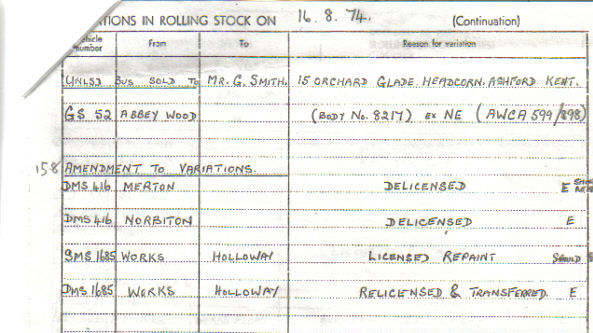 ATIONS IN ROLLING STOCK ON 16. 8. 74. (Continuation)
Vehicle number From To Reason for variation
UNLSD BUS SOLD TO MR. G. SMITH. 15 ORCHARD GLADE. HEADCORN. ASHFORD. KENT.
GS 52 ABBEY WOOD (BODY NO. 8217) EX NE (AWCA 599/898)
158 AMENDMENT TO VARIATIONS.
DMS 416 MERTON DELICENSED E
DMS 416 NORBITON DELICENSED E
SMS 1685 WORKS HOLLOWAY LICENSED REPAINT SHOULD
DMS 1685 WORKS HOLLOWAY RELICENSED & TRANSFERRED. E